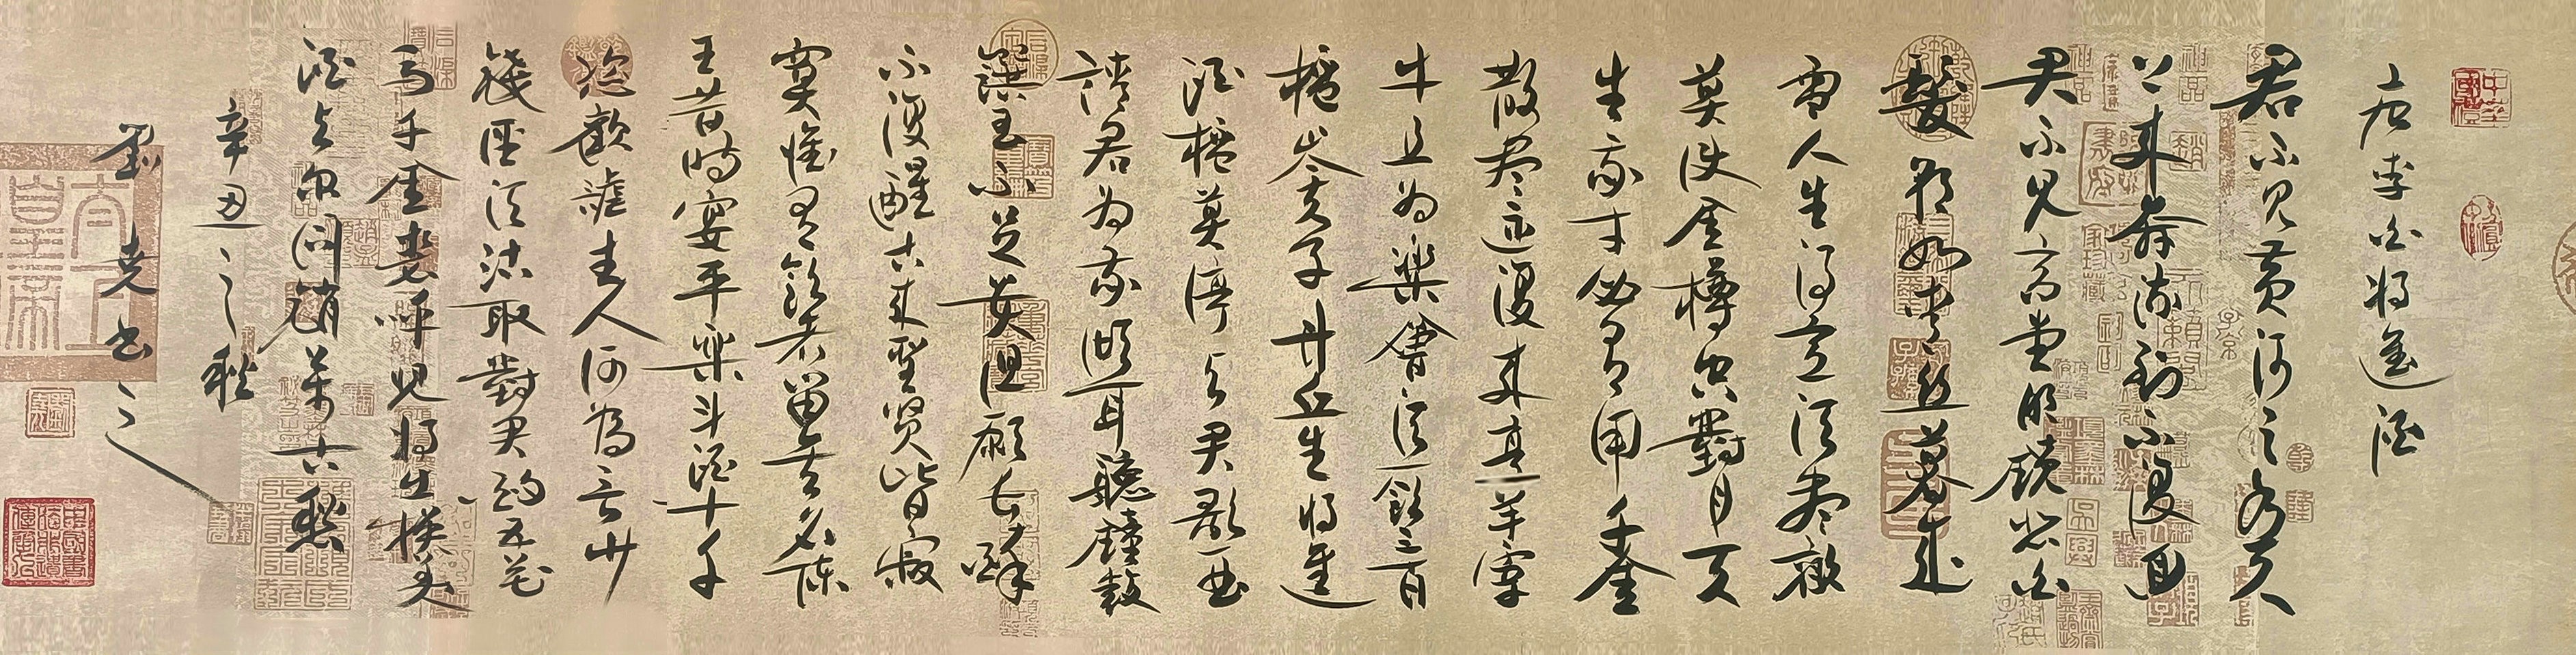 唐李白將進酒
君不見黃河之水天
上來奔流到不復回
君不見高堂明鏡悲白
髮朝如青絲暮成
雪人生得意須盡歡
莫使金樽空對月天
生我才必有用千金
散盡還復來烹羊宰
牛且為樂會須一飲三百
杯岑夫子丹丘生將進
酒杯莫停與君歌一曲
請君為我傾耳聽鐘鼓
饌玉不足貴但願長醉
不復醒古來聖賢皆寂
寞惟有飲者留其名陳
王昔時宴平樂斗酒十千
恣歡謔主人何為言少
錢徑須沽取對君酌五花
馬千金裘呼兒將出換美
酒與爾同銷萬古愁
辛丑之秋
劉堯書之